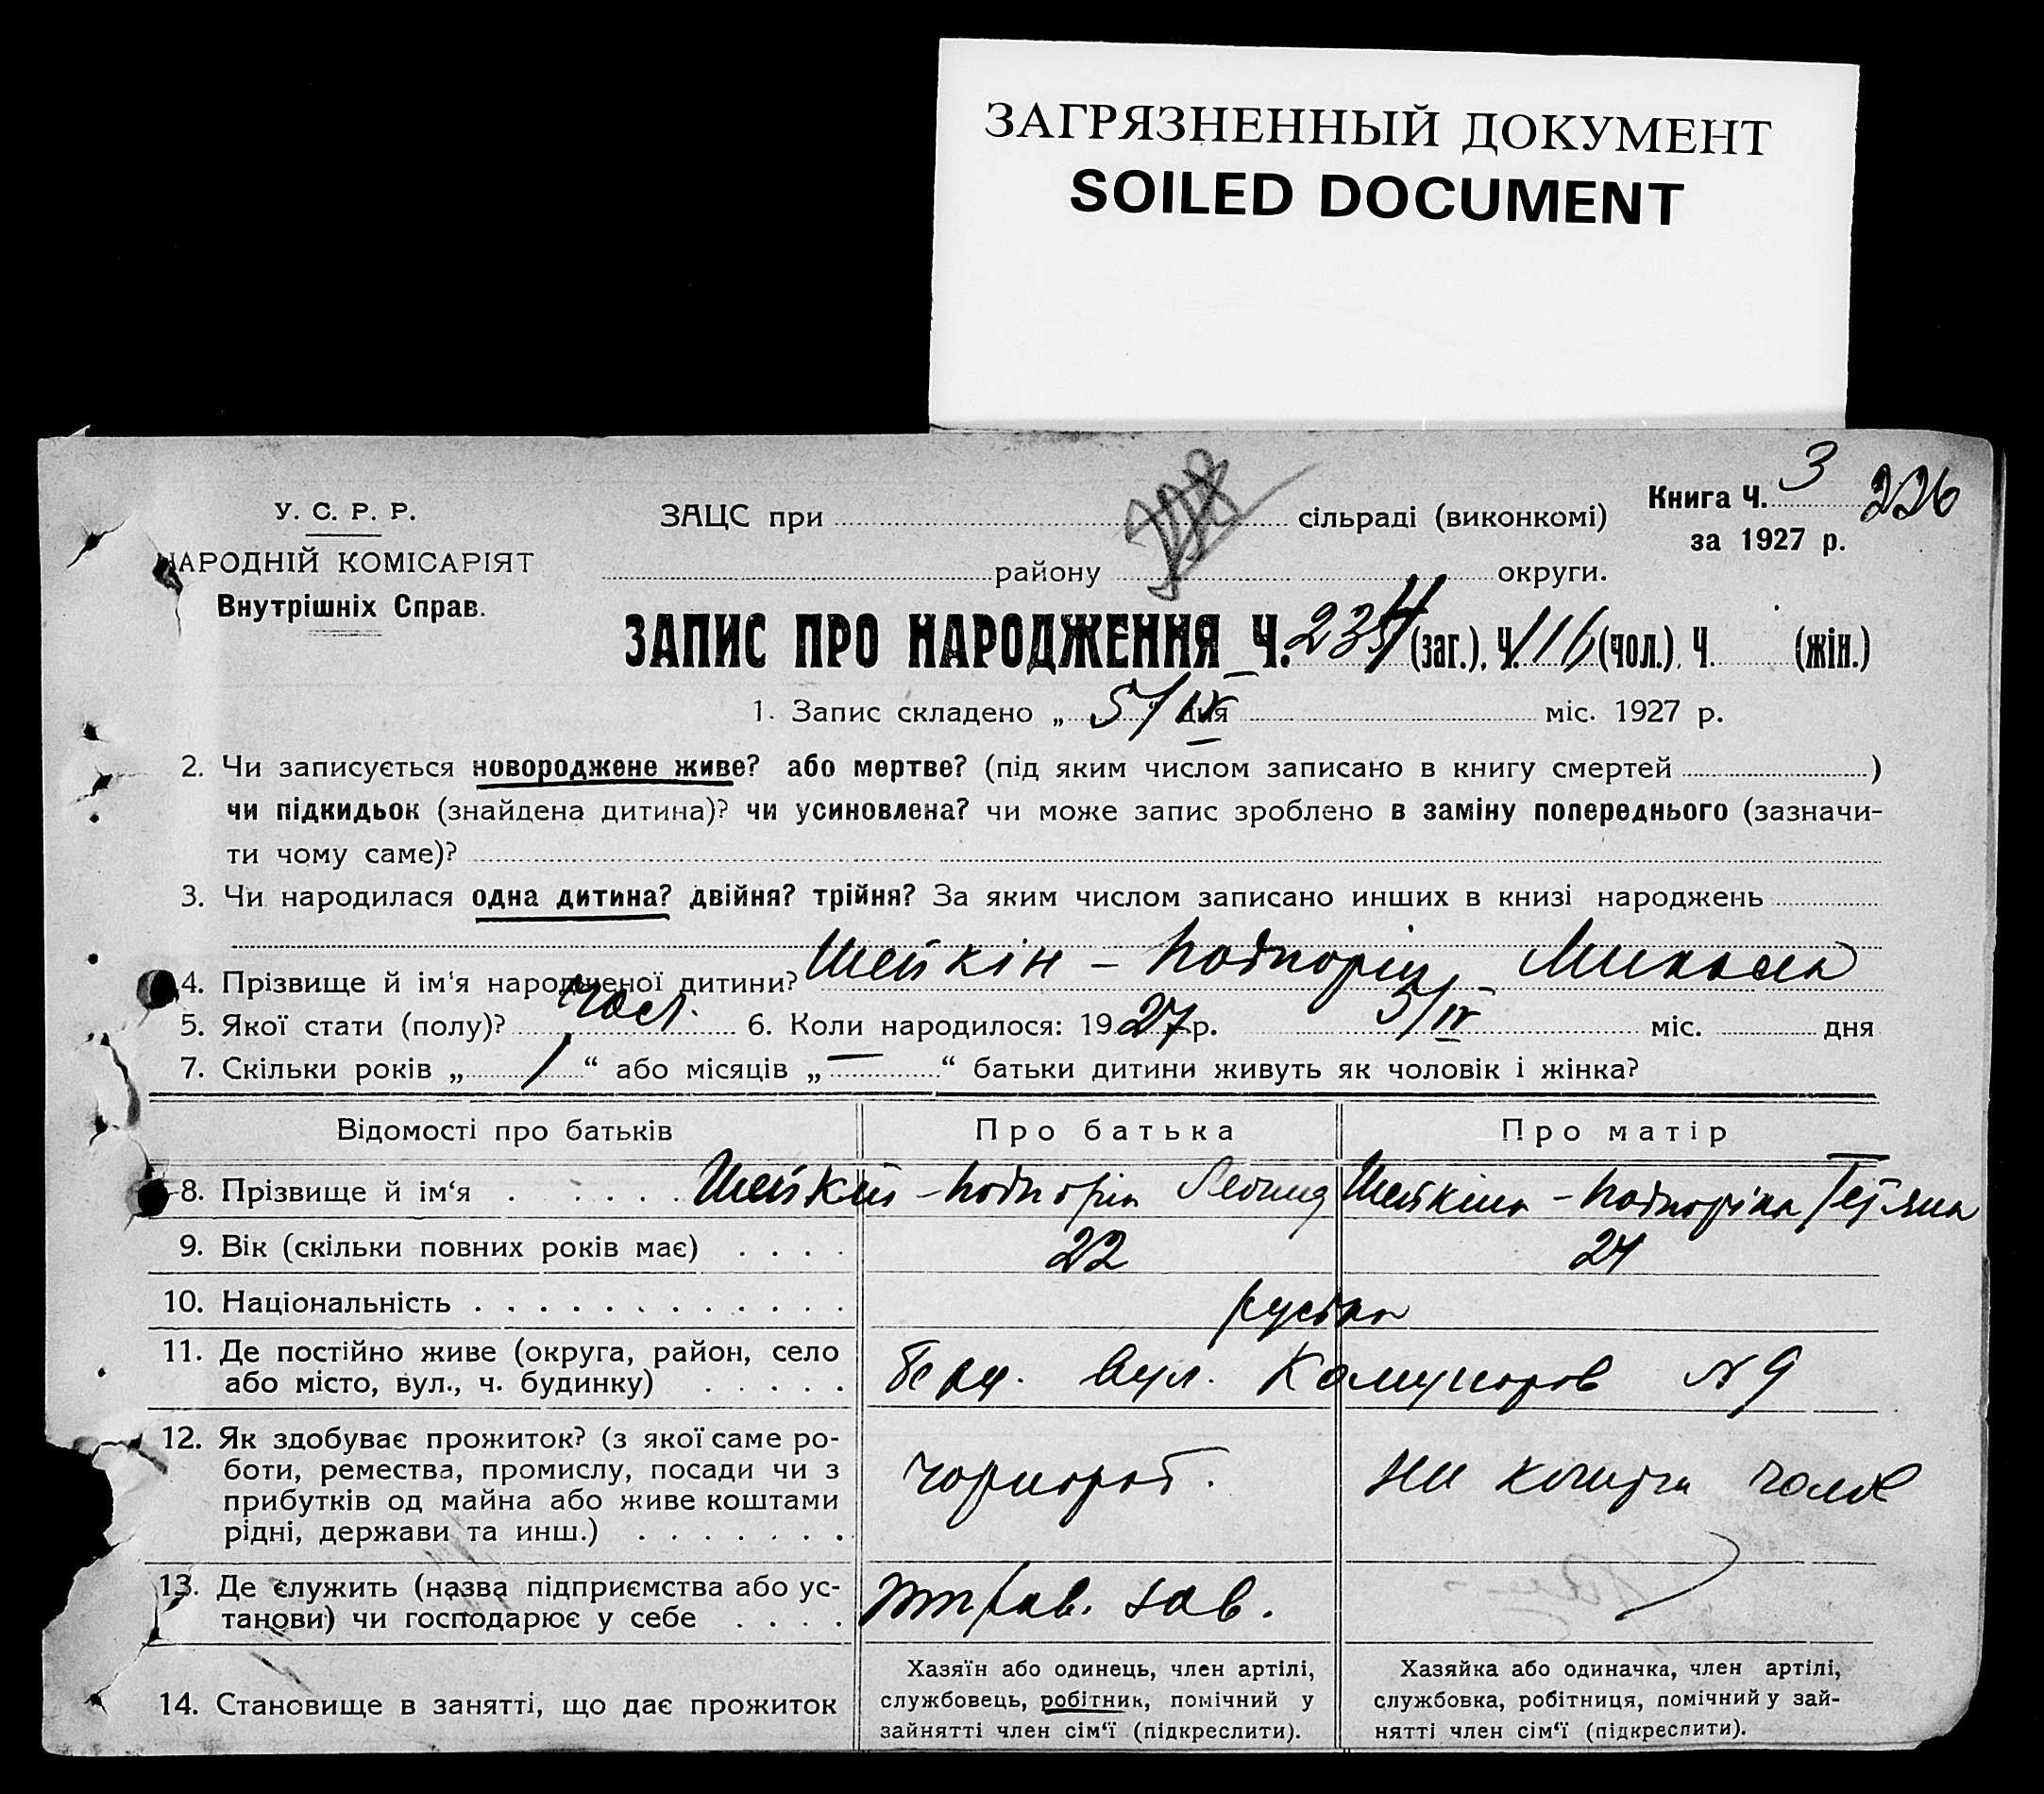 ЗАГРЯЗНЕННЫЙ ДОКУМЕНТ
SOILED DOCUMENT
Книга Ч. 3 226
за 1927 р.
У. С. Р. Р.
НАРОДНІЙ КОМІСАРІЯТ
Внутрішніх Справ.
ЗАЦС при сільраді (виконкомі)
району округи.
ЗАПИС ПРО НАРОДЖЕННЯ Ч. 234 (заг.), Ч. 116 (чол.), Ч. (жін.)
1. Запис складено „ 5/IV “ дня міс. 1927 р.
2. Чи записується новороджене живе? або мертве? (під яким числом записано в книгу смертей )
чи підкидьок (знайдена дитина)? чи усиновлена? чи може запис зроблено в заміну попереднього (зазначи-
ти чому саме)?
3. Чи народилася одна дитина? двійня? трійня? За яким числом записано инших в книзі народжень
4. Прізвище й ім'я народженої дитини? Шейкін – Подпорін Микола
5. Якої стати (полу)? чол. 6. Коли народилося: 1927 р. 5/IV міс. дня
7. Скільки років „ 1 “ або місяців „ — “ батьки дитини живуть як чоловік і жінка?
Відомості про батьків Про батька Про матір
8. Прізвище й ім‘я . . . . . Шейкін – Подпорін Леонид Шейкіна – Подпоріна Тетяна
9. Вік (скільки повних років має) . . . . 22 24
10. Національність . . . . . . . . . . . . .
11. Де постійно живе (округа, район, село
або місто, вул., ч. будинку) . . . . . вул. Комунаров № 9
12. Як здобуває прожиток? (з якої саме ро-
боти, ремества, промислу, посади чи з
прибутків од майна або живе коштами
рідні, держави та инш.) . . . . . . . чорнороб.
13. Де служить (назва підприємства або ус-
танови) чи господарює у себе . . . . зав.
14. Становище в занятті, що дає прожиток
Хазяїн або одинець, член артілі,
службовець, робітник, помічний у
зайнятті член сім‘ї (підкреслити).
Хазяйка або одиначка, член артілі,
службовка, робітниця, помічний у зай-
нятті член сім‘ї (підкреслити).